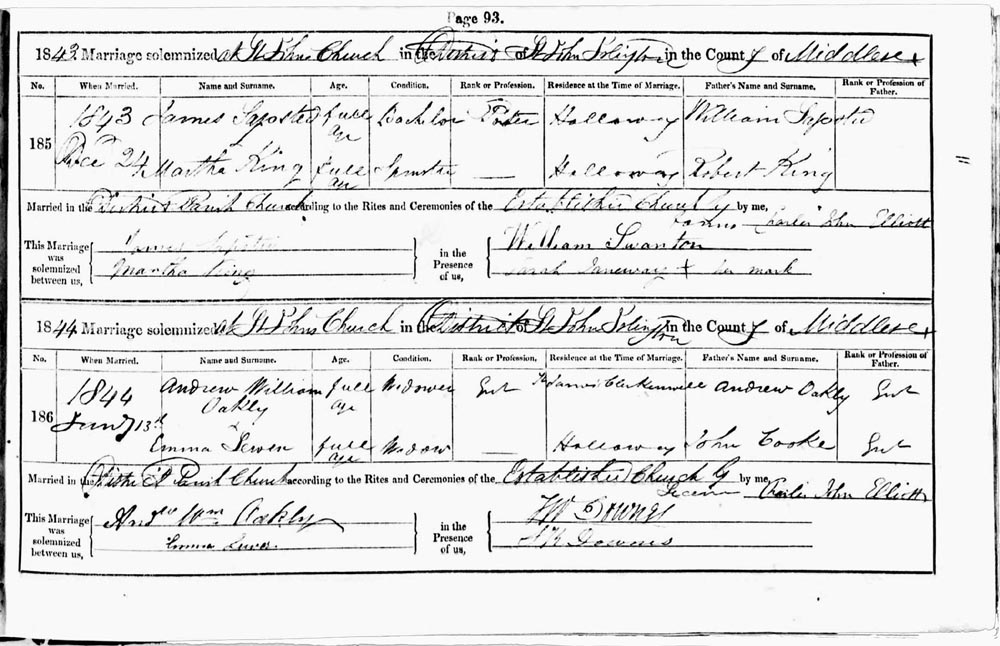 Page 93.
1843 Marriage solemnized at St Johns Church in the District of St John Islington in the County of Middlesex
No. When Married. Name and Surname. Age. Condition. Rank or Profession. Residence at the Time of Marriage. Father's Name and Surname. Rank or Profession of Father.
185 1843 Decr 24 James full age Bachelor Holloway William
Martha King full age Spinster — Holloway Robert King
Married in the District Parish Church according to the Rites and Ceremonies of the Established Church by Banns by me, Charles John Elliott
This Marriage was solemnized between us, James
Martha King
in the Presence of us, William Swanton
Sarah Janeway + her mark
1844 Marriage solemnized at St Johns Church in the District of St John Islington in the County of Middlesex
No. When Married. Name and Surname. Age. Condition. Rank or Profession. Residence at the Time of Marriage. Father's Name and Surname. Rank or Profession of Father.
186 1844 Jany 13th Andrew William Oakly full age Widower Gent St James Clerkenwell Andrew Oakly Gent
Emma full age Widow — Holloway John Cooke Gent
Married in the District Parish Church according to the Rites and Ceremonies of the Established Church by Licence by me, Charles John Elliott
This Marriage was solemnized between us, Andw Wm Oakly
Emma
in the Presence of us,